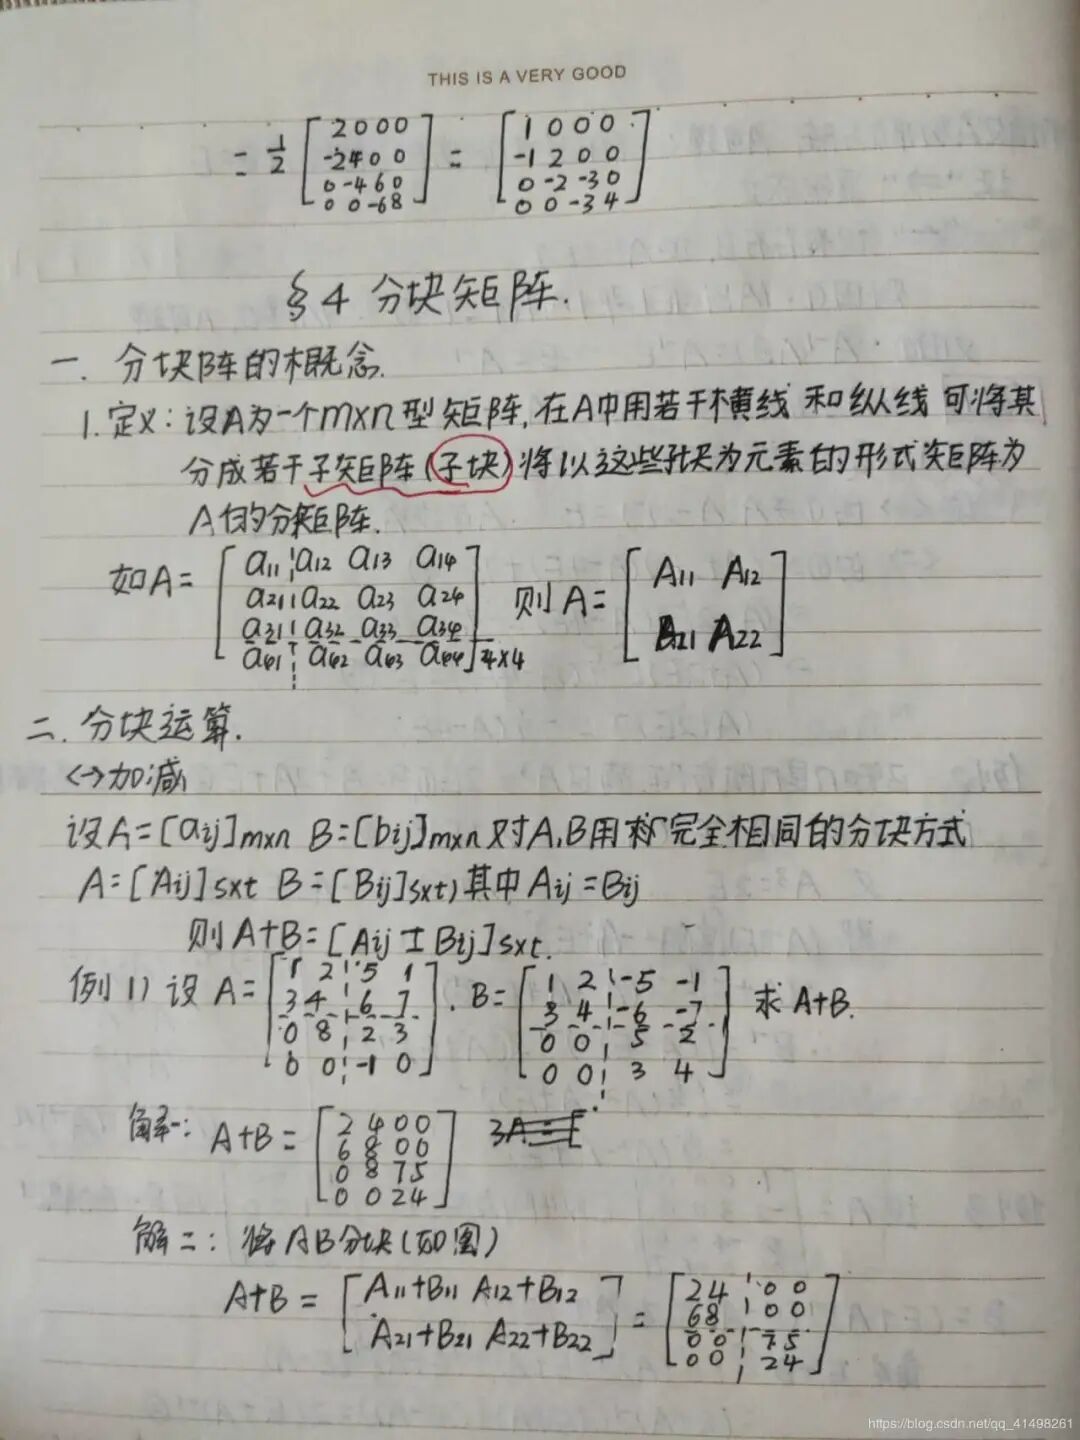 THIS IS A VERY GOOD
= 1/2 [2 0 0 0; -2 4 0 0; 0 -4 6 0; 0 0 -6 8] = [1 0 0 0; -1 2 0 0; 0 -2 -3 0; 0 0 -3 4]
§4 分块矩阵.
一. 分块阵的概念.
1. 定义: 设A为一个m×n型矩阵, 在A中用若干横线和纵线可将其
分成若干子矩阵(子块)将以这些子块为元素的形式矩阵为
A的分矩阵.
如A = [a11 a12 a13 a14; a21 a22 a23 a24; a31 a32 a33 a34; a41 a42 a43 a44]4×4 则A = [A11 A12; A21 A22]
二. 分块运算.
<→加减
设A=[aij]m×n B=[bij]m×n 对A,B用称完全相同的分块方式
A=[Aij]s×t B=[Bij]s×t) 其中Aij=Bij
则A+B=[Aij±Bij]s×t.
例1) 设A=[1 2 5 1; 3 4 6 7; 0 8 2 3; 0 0 -1 0]. B=[1 2 -5 -1; 3 4 -6 -7; 0 0 5 2; 0 0 3 4] 求A+B.
解一: A+B=[2 4 0 0; 6 8 0 0; 0 8 7 5; 0 0 2 4] 3A=[
解二: 将AB分块(如图)
A+B=[A11+B11 A12+B12; A21+B21 A22+B22]=[2 4 0 0; 6 8 0 0; 0 0 7 5; 0 0 2 4]
https://blog.csdn.net/qq_41498261